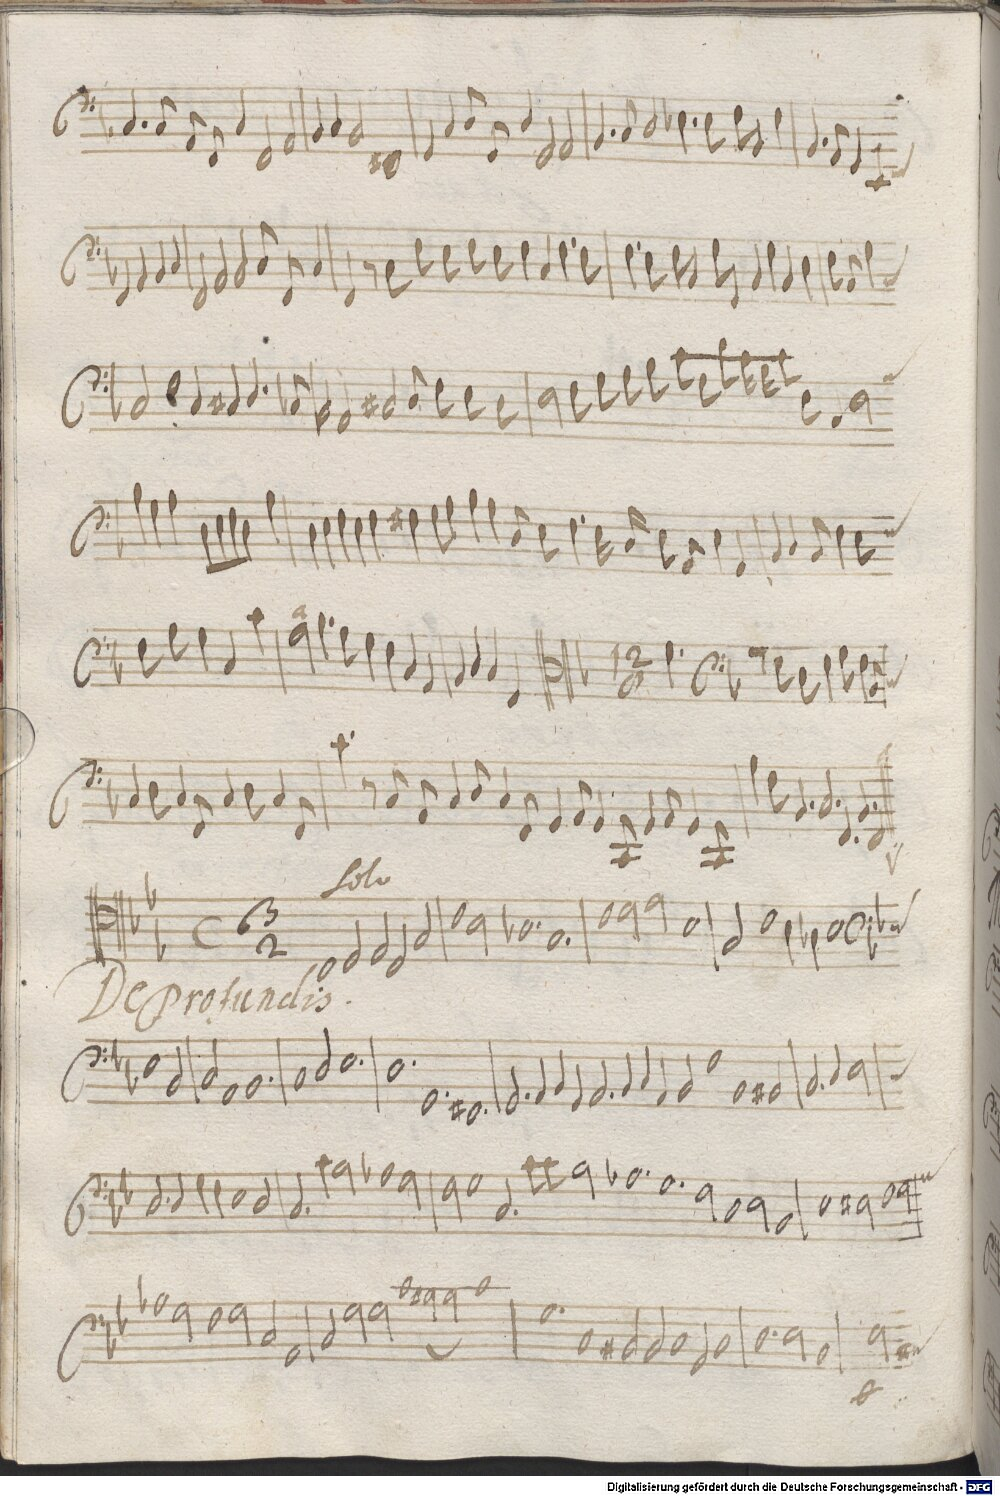 12
8
Solo
C 63
2
De profundis.
Digitalisierung gefördert durch die Deutsche Forschungsgemeinschaft - DFG